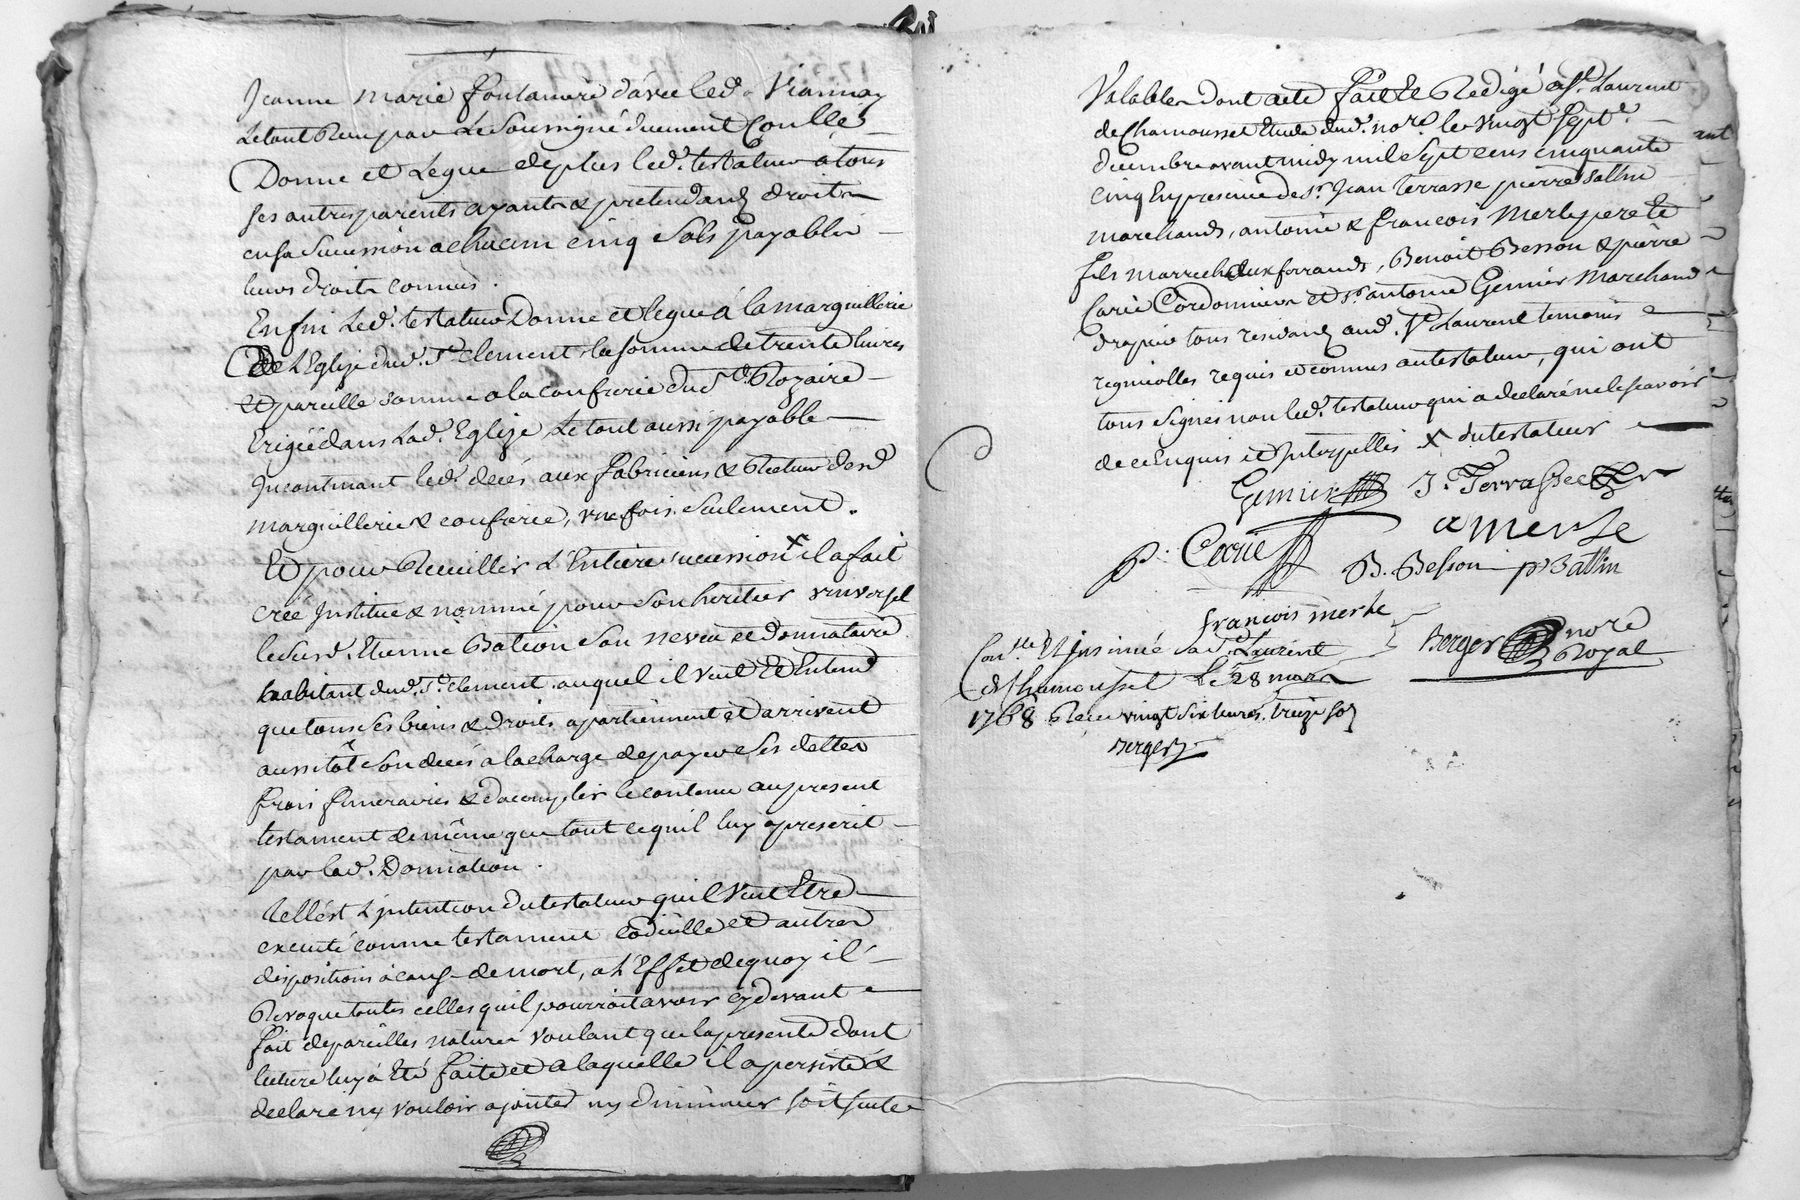 Jeanne Marie fontaniere d'avec led. Viannay
Le tout Reçu par Le Soussigné duement Conllé
Donne et Legue deplus led. testateur a tous
ses autres parents ayants & pretendants droits
en sa Sucession a chacun cinq Sols payables
leurs droits connus.
Enfin Led. testateur Donne et legue à la marguillerie
De L'Eglise dud. St. Clement la somme de trente livres
Et pareille somme a la confrerie du St. Rozaire
Erigée dans Lad. Eglize, Le tout aussi payable
Incontinant led. decés aux fabriciens & Recteurs desd.
marguillerie & confrerie, une fois seulement.
Et pour Recuillir L'Entiere sucession x il a fait
creé Institué & nommé pour Son heritier universel
le susd. Etienne Bation Son neveu et donnataire
habitant dud. St. Clement auquel il veut Et Entend
que tous ses biens & droits apartiennent et arrivent
aussitôt Son decés a la charge de payer Ses dettes
frais funeraires & dacomplir le contenu au present
testament de même que tout ce quil luy a prescrit
par lad. Donnation.
Telle est L'intention du testateur quil Veut Etre
executé comme testament Codicille et autres
dispositions à cause de mort, a L'Effet de quoy il
Revoque toutes celles quil pourroit avoir cy devant
fait de pareilles natures voulant que la presente dont
lecture luy a Eté faite et a laquelle il a persisté &
declaré ny vouloir ajouter ny diminuer soit seule
Valables dont acte fait Et Redigé a St. Laurent
de Chamousset Etude dud. nore. le vingt sept
decembre avant midy mil Sept cens cinquante
cinq En presence de sr. Jean terrasse pierre Sallin
marchands, antoine & francois merle pere et
fils marrechaux ferrands, Benoit Besson & pierre
Carié Cordonniers et sr. antoine Gennier Marchand
drapier tous residants aud. St. Laurent temoins
regnicolles requis et connus au testateur, qui ont
tous signés non led. testateur qui a declaré ne le scavoir
de ce Enquis et Interpellés x du testateur
Gennier J. Terrasse
P. Carié a merle
B. Besson p Sallin
francois merle
Conllé Et Insinué a St. Laurent
de Chamousset Le 28 mars
1768 Reçu vingt six livres treize sols
Berger
Berger nore
Royal